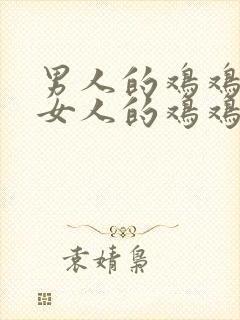 男人的鸡鸡
女人的鸡鸡
袁婧枭